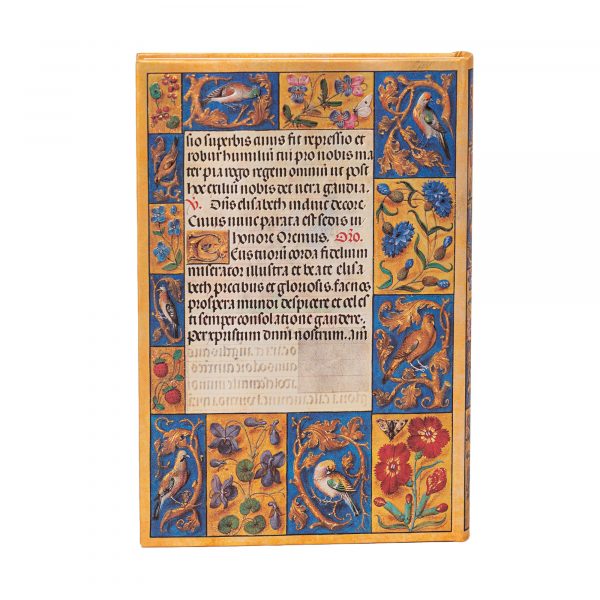 sio superbis cuius fit repressio et
robur humiliū tui pro nobis ma
ter pia rogo regem omniū ut post
hoc exiliū nobis det vera gaudia.
V. Dn̄s elisabeth induit decore.
Cuius nunc parata est sedis in
honore Oremus. Oro.
Deus tuorū corda fidelium
miserator illustra et beate elisa
beth precibus et gloriosis. fac nos
prospera mundi despicere et celes
ti semper consolatione gaudere.
per xpistum dnm̄ nostrum. Am